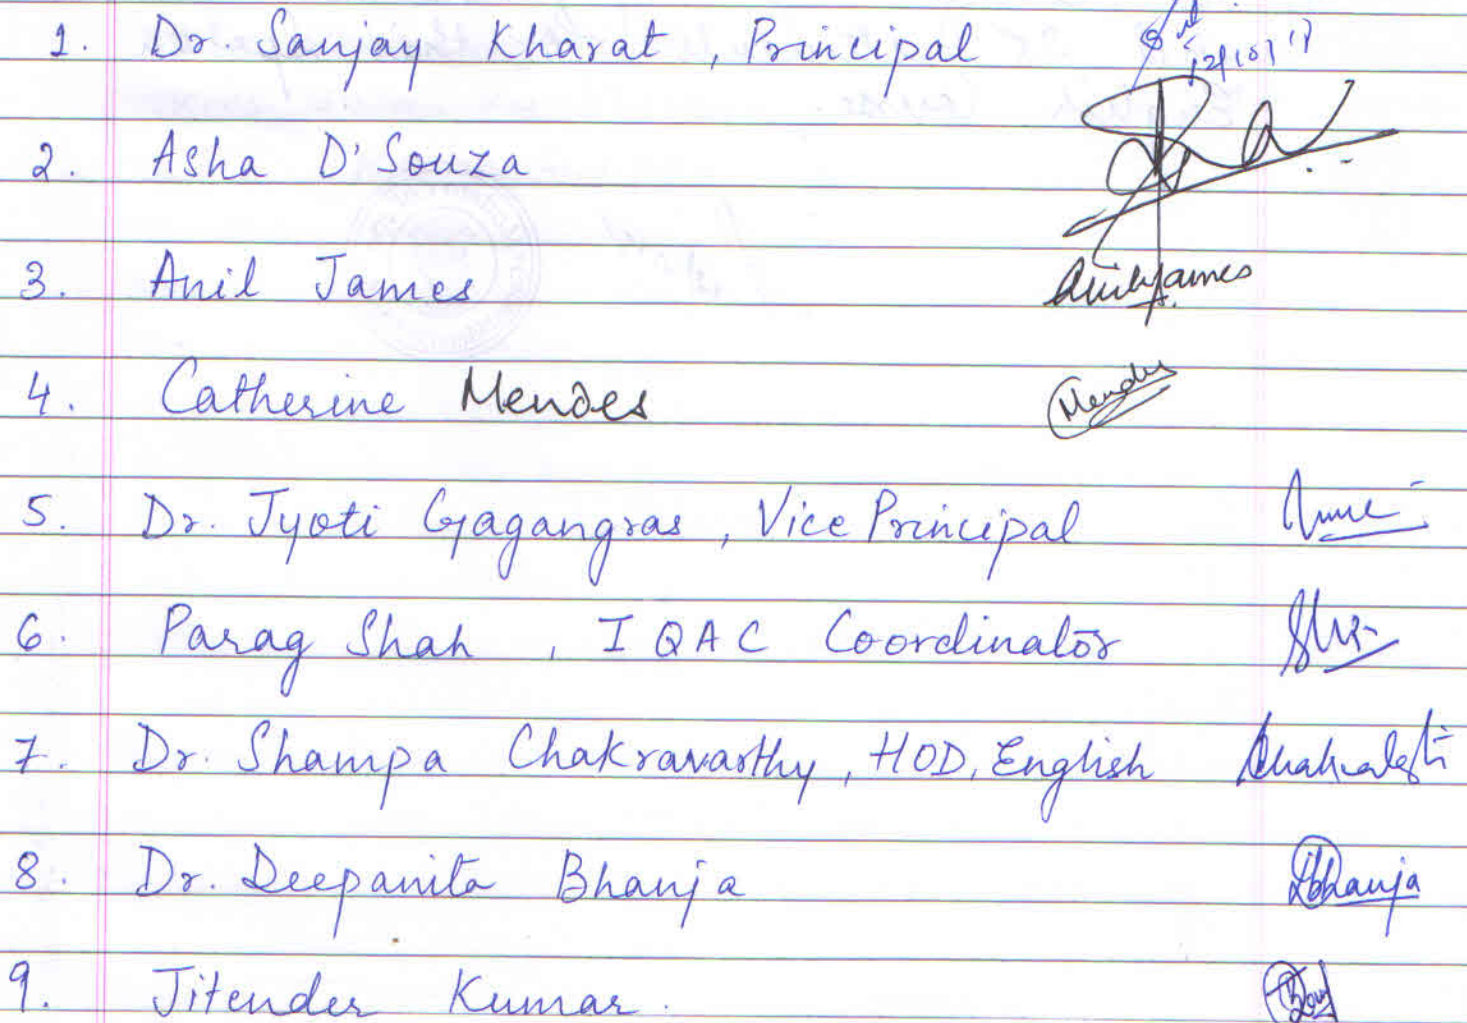 1. Dr. Sanjay Kharat, Principal
2. Asha D'Souza
3. Anil James Anil James
4. Catherine Mendes Mendes
5. Dr. Jyoti Gagangras, Vice Principal
6. Parag Shah, IQAC Coordinator
7. Dr. Shampa Chakravarthy, HOD, English
8. Dr. Deepanita Bhanja Dbhanja
9. Jitender Kumar.